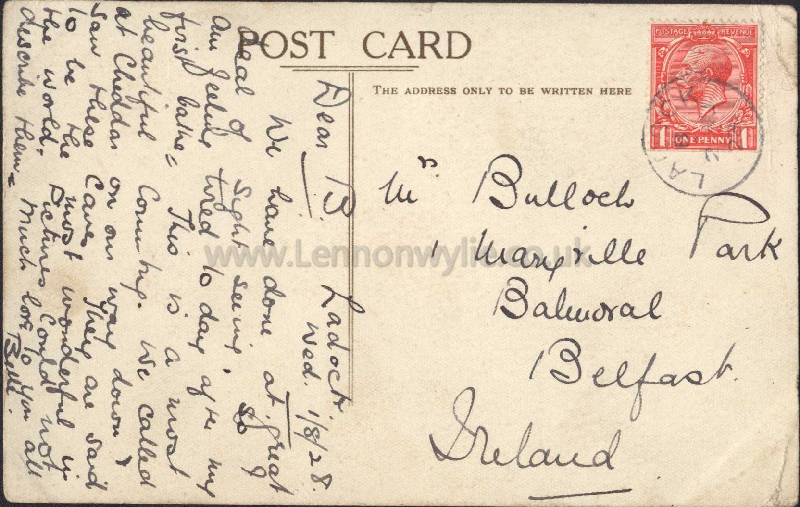 POST CARD
THE ADDRESS ONLY TO BE WRITTEN HERE
Ladock
Wed. 1/8/28.
Dear B.
We have done at great
deal of sight seeing, so I
am feeling tired to day after my
first bathe = This is a most
beautiful Country. We called
at Cheddar on our way down &
saw these Caves. They are said
to be the most wonderful in
the world. Pictures could not
describe them = Much love to you all
Belle.
Mrs Bulloch
1 Maryville Park
Balmoral
Belfast.
Ireland
POSTAGE REVENUE
1 ONE PENNY 1
www.Lennonwylie.co.uk